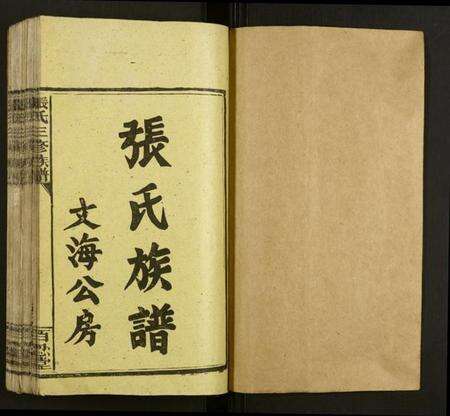 張氏族譜
文海公房
張氏三修族譜
百忍堂